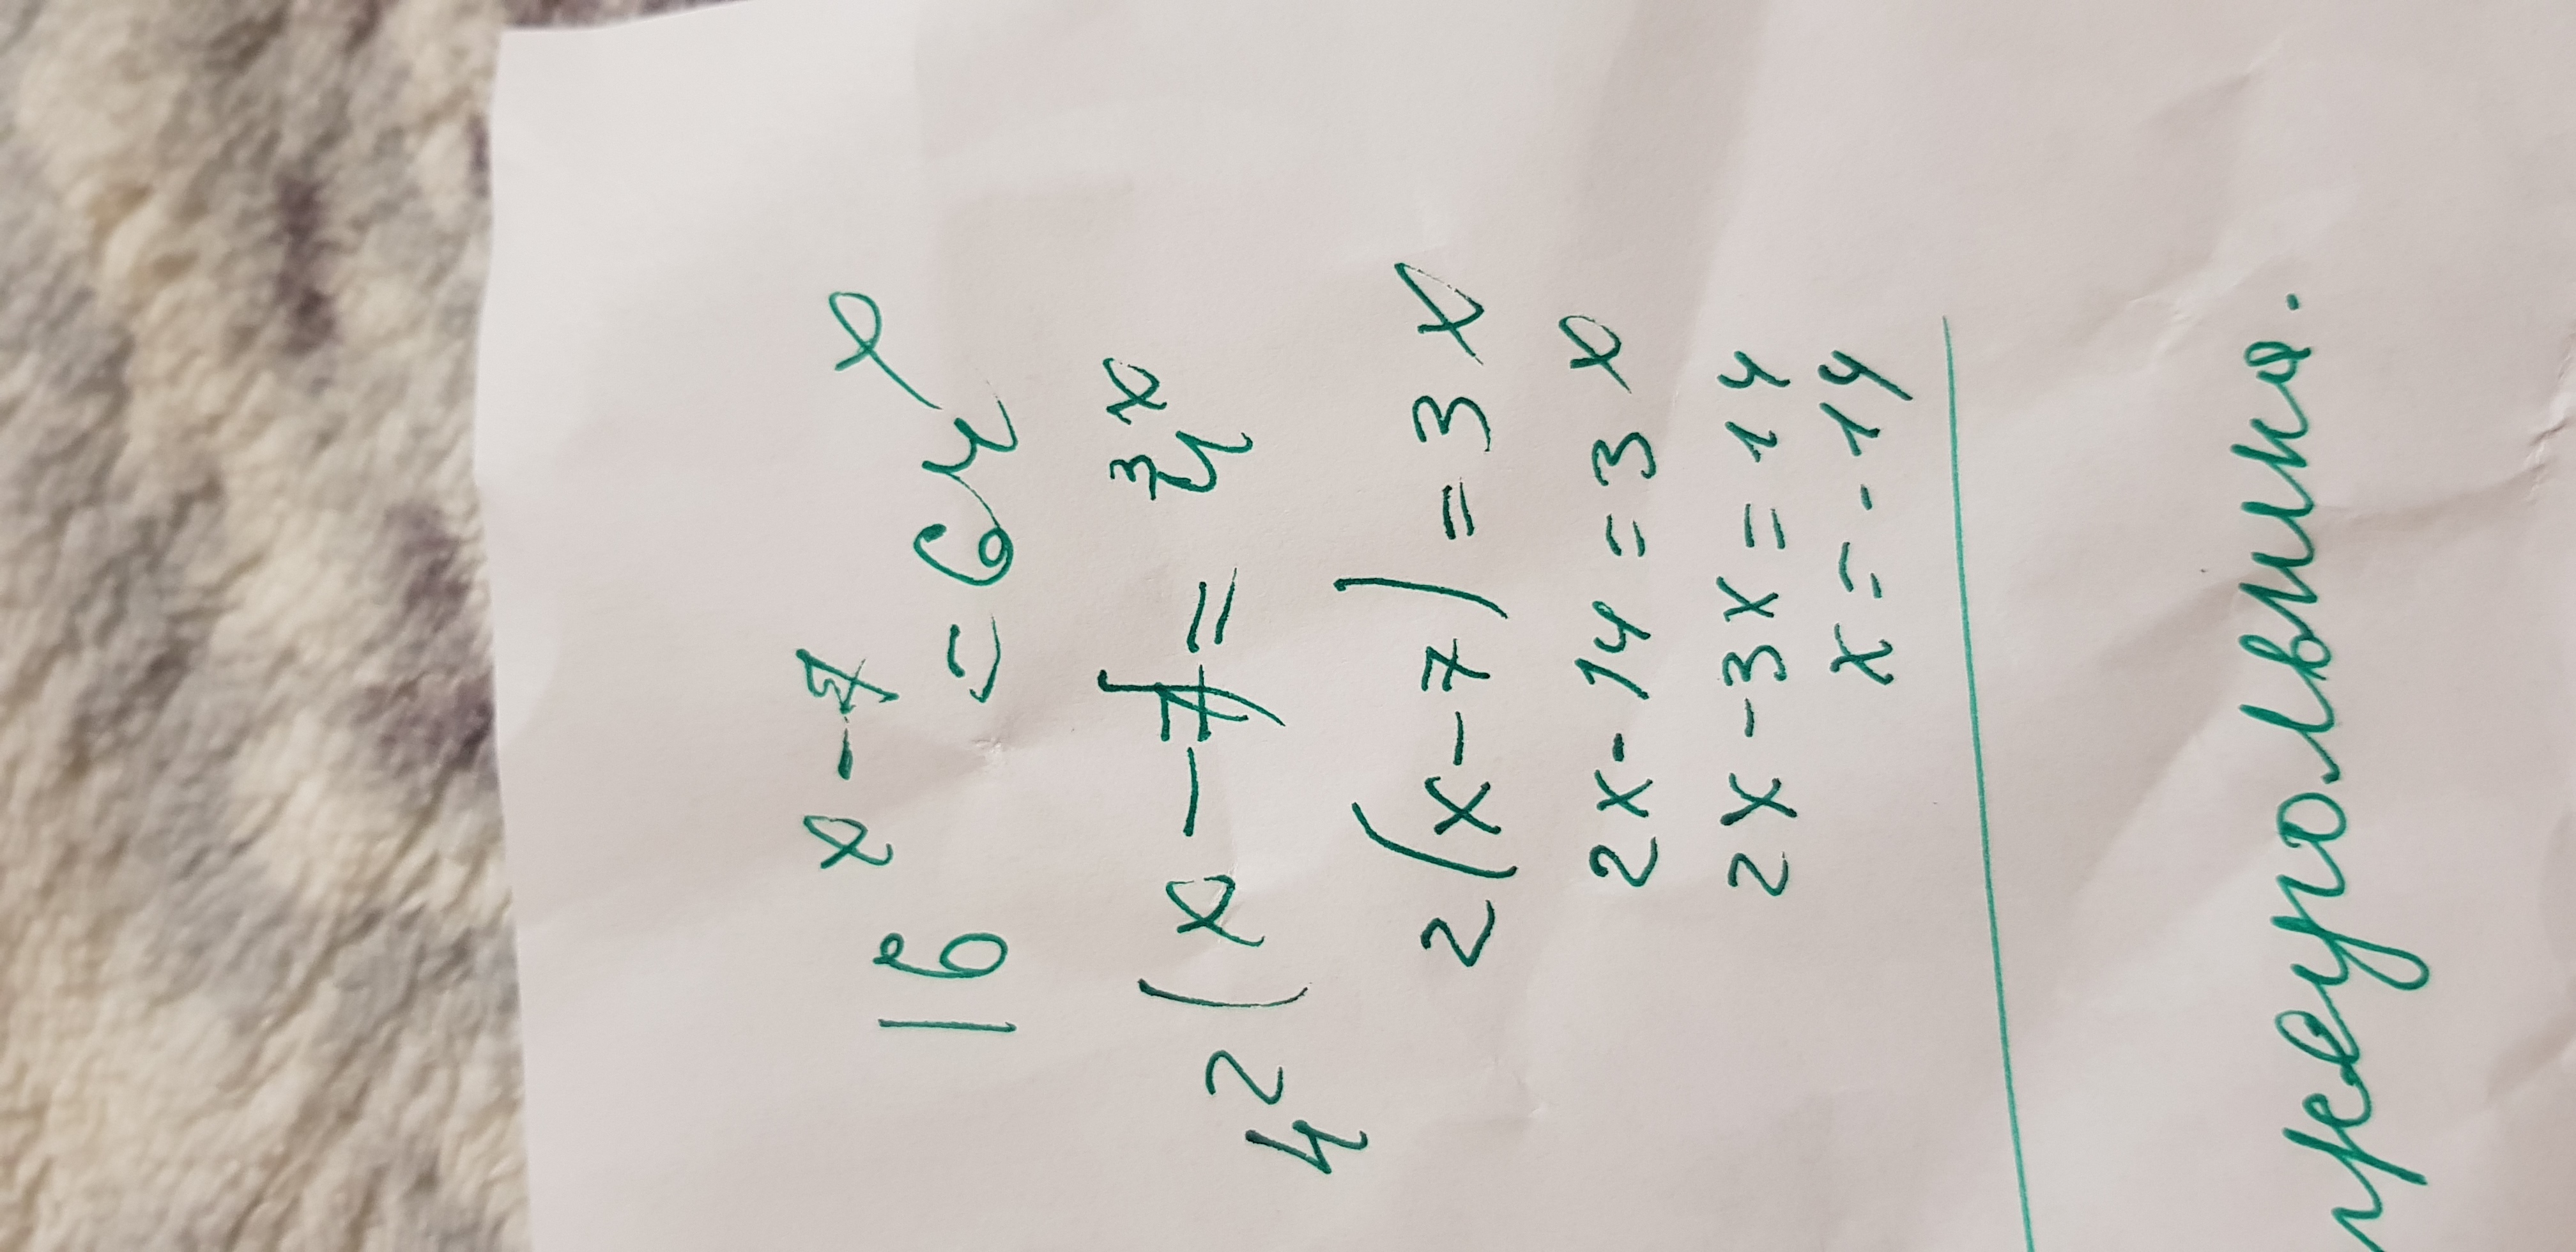 16^(x-7) = 64^x
4^(2(x-7)) = 4^(3x)
2(x-7) = 3x
2x-14 = 3x
2x-3x = 14
x = -14
треугольника.